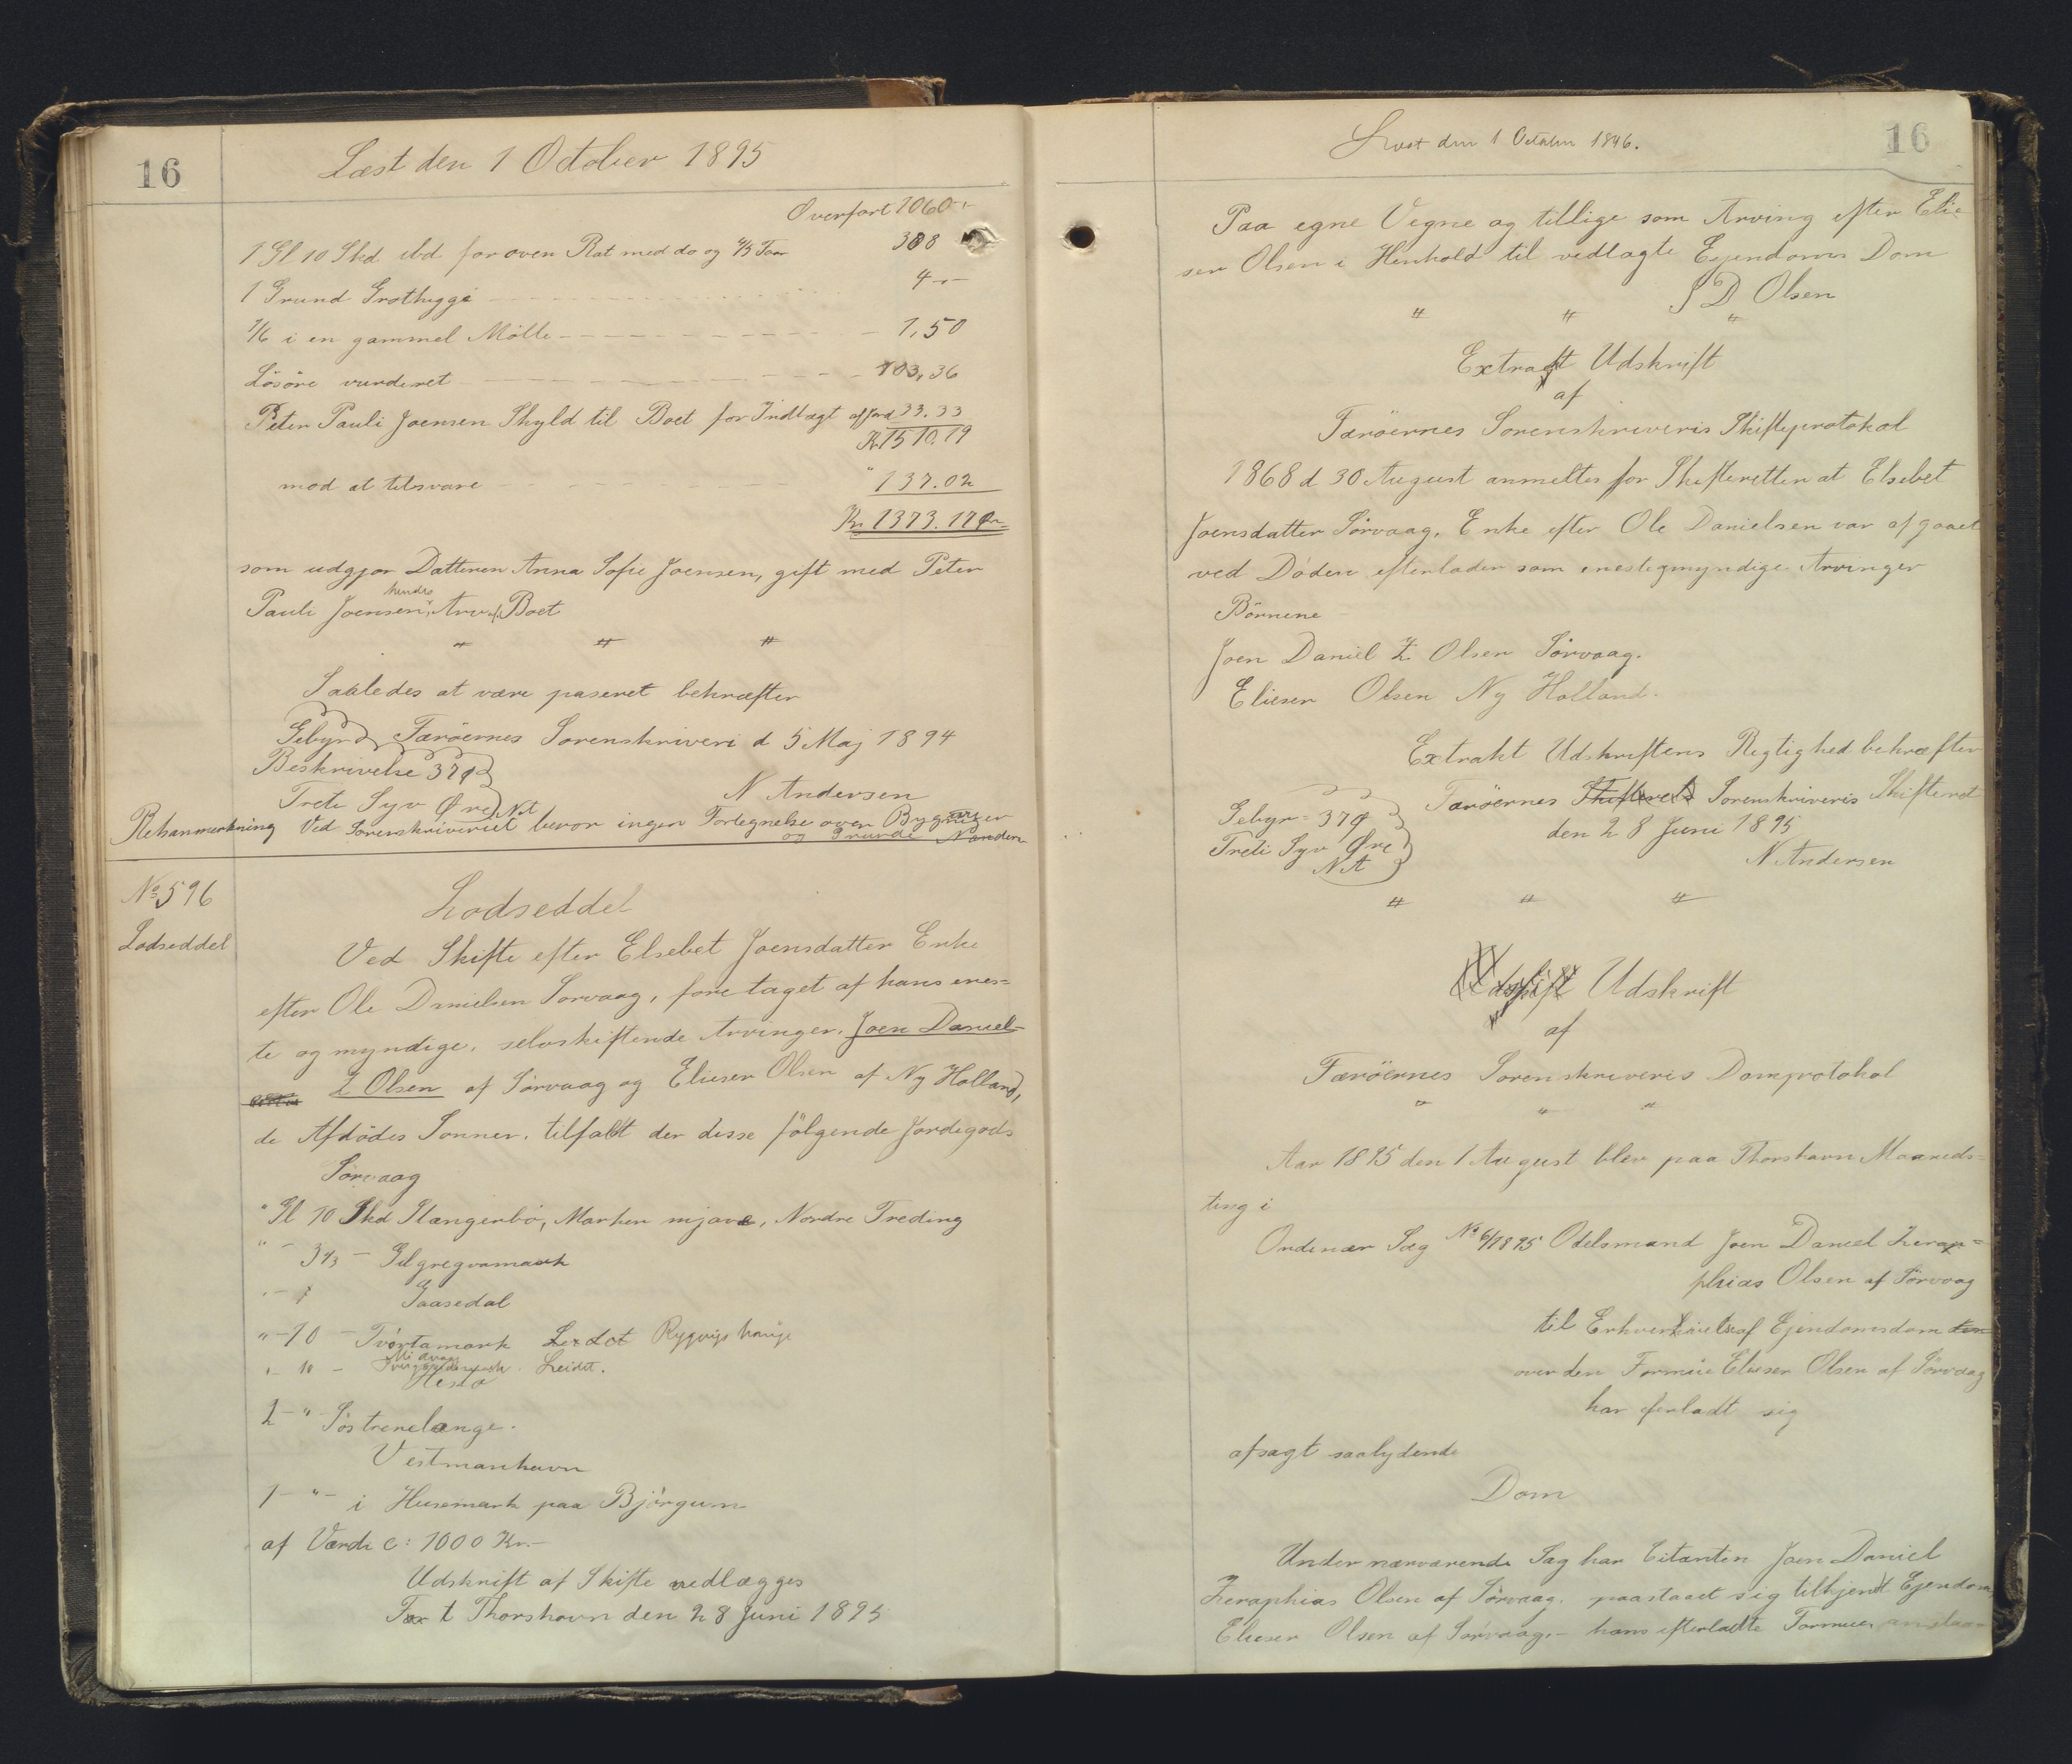 16
Læst den 1 October 1895
Overført 1060"-
1 Gl 10 Skd ibd foroven Rat med do og 4/5 Faar 308
1 Grund Grothuggi 4"-
1/6 i en gammel Mølle 1,50
Løsøre vurderet 103,36
Peter Pauli Joensen Skyld til Boet for Indtægt af Jord 33.33
Kr 1510.19
mod at tilsvare " 137.02
Kr. 1373.17 Ør.
som udgjør Datteren Anna Sofie Joensen, gift med Peter
Pauli Joensen, hendes Arv af Boet
" " "
Saaledes at være paseret bekræfter
Gebyr Færöernes Sorenskriveri d 5 Maj 1894
Beskrivelse 37 Ø
Treti Syv Øre NA N Andersen
Retsanmærkning Ved Sorenskriveriet beror ingen Fortegnelse over Bygninger
og Grunde
No 596
Lodseddel
Lodseddel
Ved Skifte efter Elsebet Joensdatter Enke
efter Ole Danielsen Sørvaag, foretaget af hans enes=
te og myndige, selvskiftende Arvinger, Joen Daniel
Z Olsen af Sørvaag og Elieser Olsen af Ny Holland,
de Afdödes Sønner, tilfaldt der disse fölgende Jordegods
Sørvaag
" Gl 10 Skd Slangerbø, Marken mjava, Nordre Treding
" - 3 1/3 - Gilgregvamark
Gaasedal
" - 10 - Tvørtamark Leidet Rygvigs hauge
" 10 - Leidet.
2 - " Søstrenelange.
Vestmanhavn
1 - " - i Husemark paa Bjørgum
af Værdi c: 1000 Kr.-
Udskrift af Skifte vedlægges
Fax t Thorshavn den 28 Juni 1895
16
Læst den 1 October 1896.
Paa egne Vegne og tillige som Arving efter Elie
ser Olsen i Henhold til vedlagte Ejendoms Dom
J D Olsen
" " "
Extract Udskrift
af
Færöernes Sorenskriveris Skifteprotokol
1868 d 30 August anmeltes for Skifteretten at Elsebet
Joensdatter Sørvaag, Enke efter Ole Danielsen var afgaaet
ved Döden efterlader som eneste myndige Arvinger
Börnene
Joen Daniel Z. Olsen Sørvaag.
Elieser Olsen Ny Holland.
Extrakt Udskriftens Rigtighed bekræfter
Færöernes Skifteret Sorenskriveris Skifteret
Gebyr = 37 Ø
den 28 Juni 1895
Treti Syv Øre
N A
N Andersen
" " "
Udskrift Udskrift
af
Færöernes Sorenskriveris Domprotokol
" " "
Aar 1895 den 1 August blev paa Thorshavn Maaneds=
ting i
Ordinær Sag No 6/1895 Odelsmand Joen Daniel Zerap=
phias Olsen af Sørvaag
til Erhvervelse af Ejendomsdom
over den Formue Elieser Olsen af Sørvaag
har efterladt sig
afsagt saalydende
Dom
Under nærværende Sag har Citanten Joen Daniel
Zeraphias Olsen af Sørvaag, paastaaet sig tilkjendt Ejendom
Elieser Olsen af Sørvaag,- hans efterladte Formue,